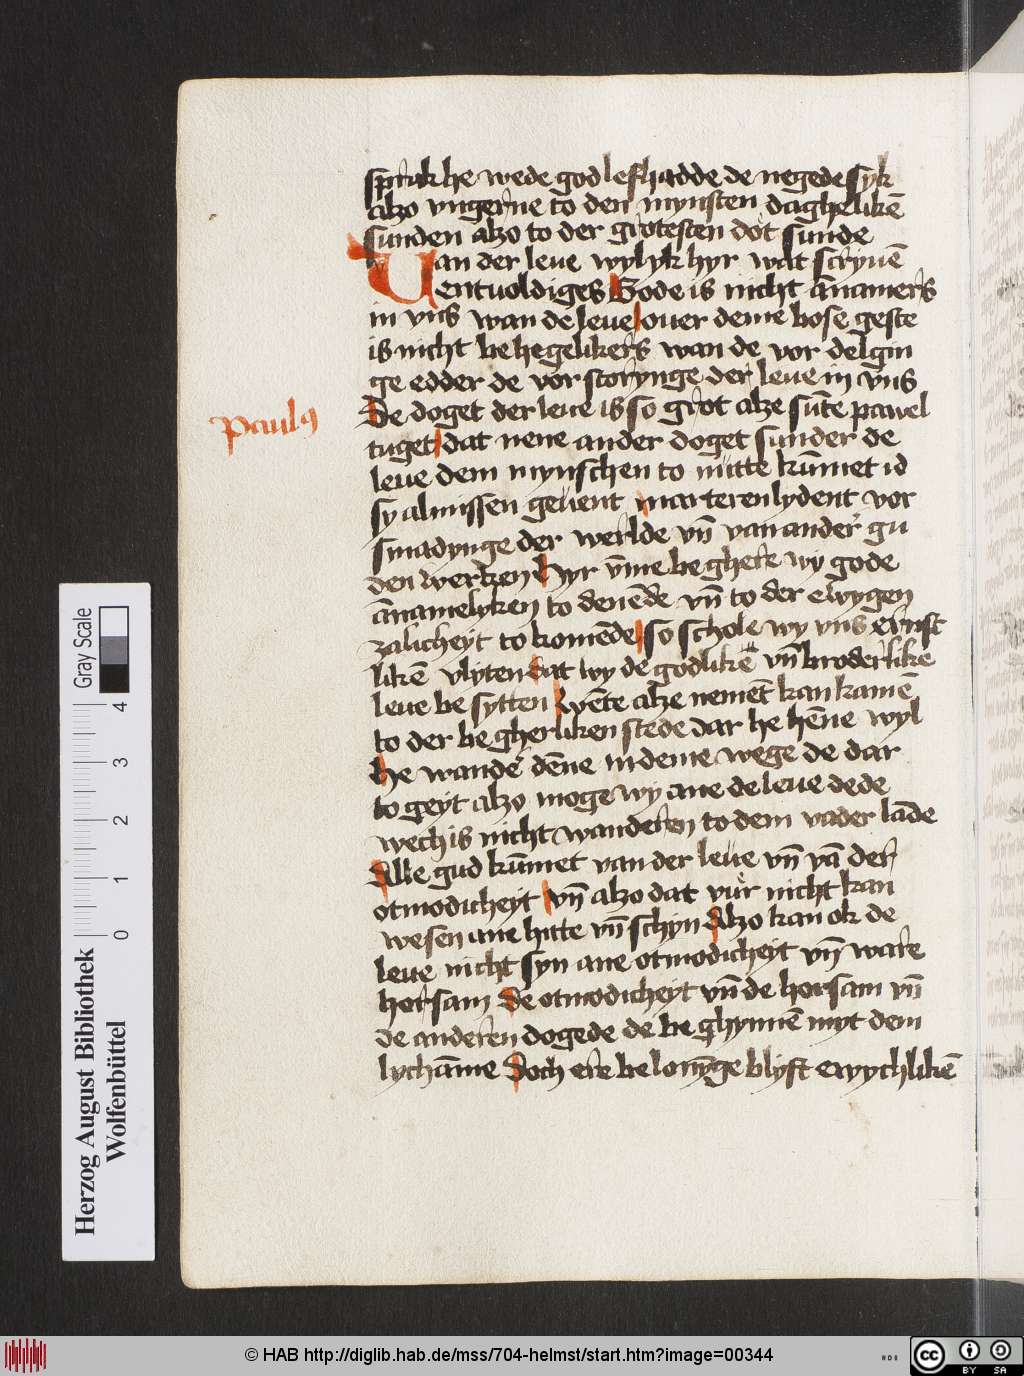 sprak he wede god lefhadde de negede syk
alzo vngerne to den mynsten daghelikē
sunden alzo to der grotesten dot sunde
Uan der leue wylyk hyr wat scryuē
entuoldiges Gode is nicht ānamers
in vns wan de leue ouer deme bose geste
is nicht behegelikers wan de vor delgin
ge edder de vorstorynge der leue in vns
De doget der leue is so grot alze sūte pawel
Paulꝯ
tuget dat nene ander doget sunder de
leue dem mynschen to nutte kūmet id
sy almissen geuent marteren lydent vor
smadynge der werlde vn̄ van ander gu
den werken Hyr v̄me beghere wy gode
ānamelyken to denēde vn̄ to der ewygen
zalicheyt to komēde so schole wy vns ernst
likē vlyten dat wy de godlikē vn̄ broderlike
leue besytten Wēte alze nemēt kan kamē
to der begherliken stede dar he hēne wyl
he wande dēne in deme wege de dar
to geyt alzo moge wy ane de leue dede
wech is nicht wanderen to dem vader lāde
Alle gud kūmet van der leue vn̄ vā der
otmodicheyt vn̄ alzo dat vur nicht kan
wesen ane hitte vn̄ schyn Alzo kan ok de
leue nicht syn ane otmodicheyt vn̄ ware
horsam De otmodicheyt vn̄ de horsam vn̄
de anderen dogede de beghynnē myt dem
lychāme Doch ere belonȳge blyft ewychlikē
Gray Scale
0 1 2 3 4
Herzog August Bibliothek
Wolfenbüttel
© HAB http://diglib.hab.de/mss/704-helmst/start.htm?image=00344
cc BY SA